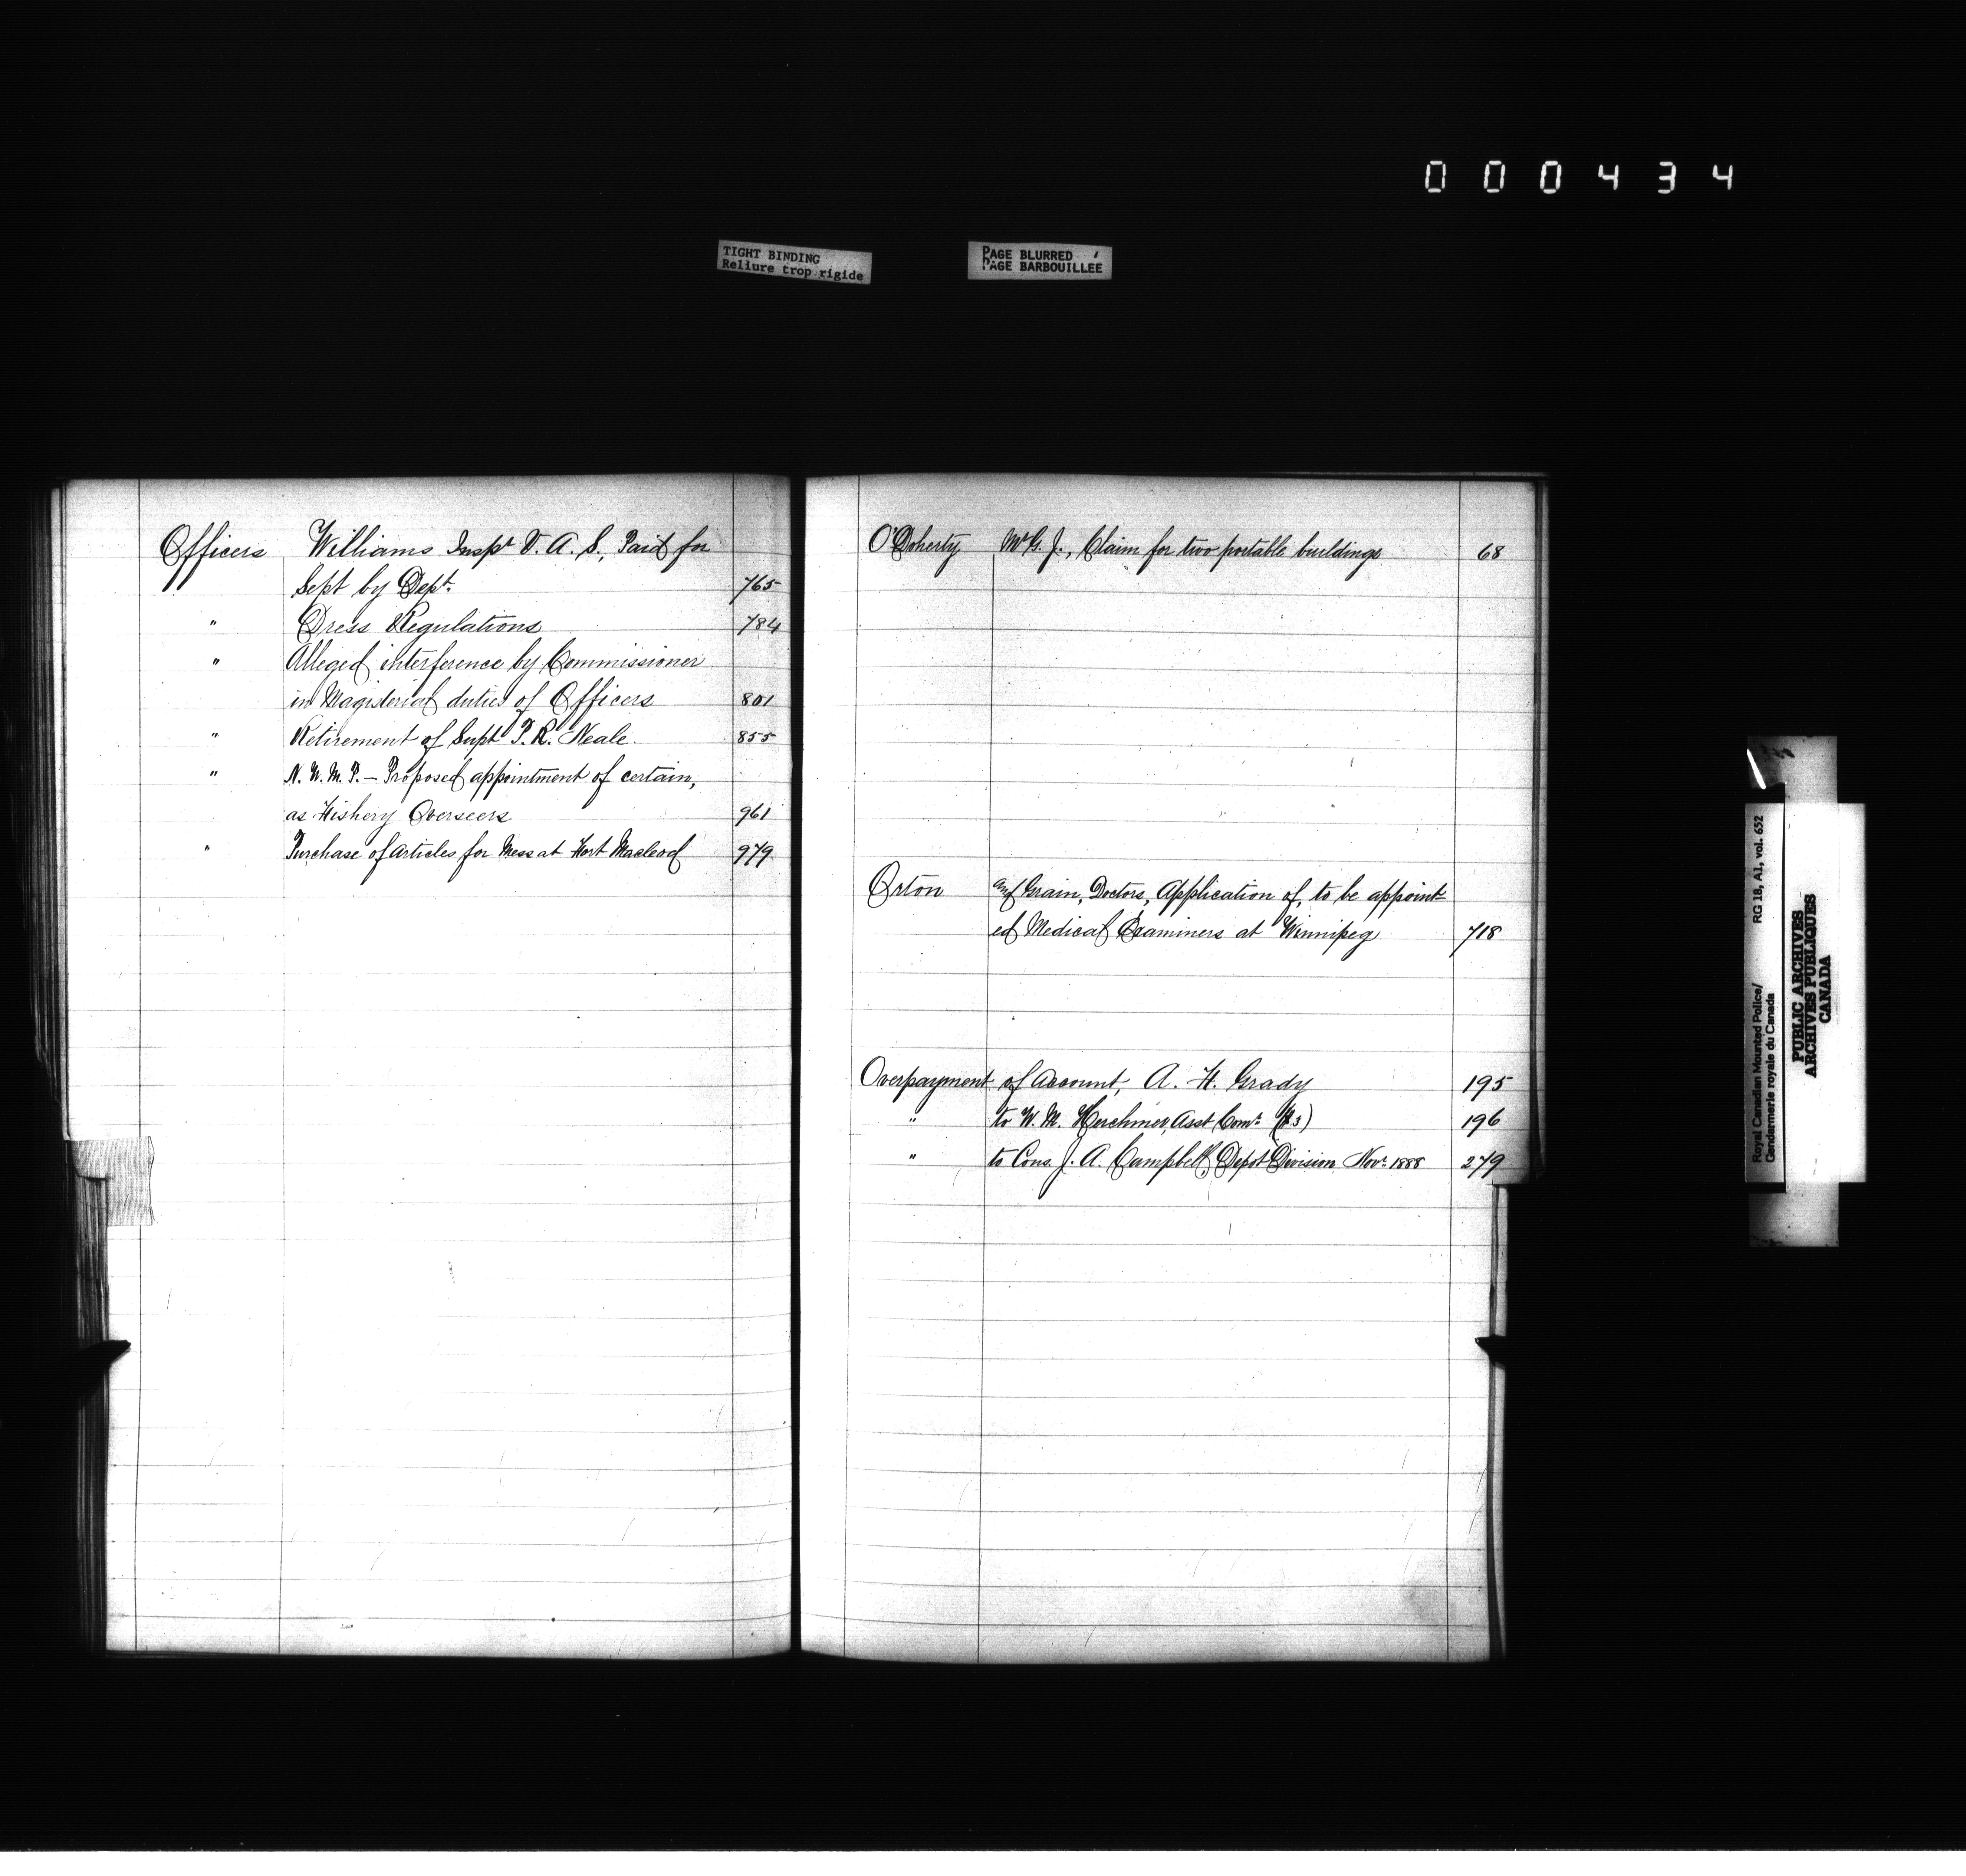 000434
TIGHT BINDING
Reliure trop rigide
PAGE BLURRED
PAGE BARBOUILLEE
Officers Williams Inspt V. A. S., Paid for
Sept by Dept. 765
" Dress Regulations 784
" Alleged interference by Commissioner
in Magisterial duties of Officers 801
" Retirement of Supt P. R. Neale. 855
" N. W. M. P. – Proposed appointment of certain,
as Fishery Overseers 961
" Purchase of Articles for Mess at Fort Macleod 979
O'Doherty Mr G. J., Claim for two portable buildings 68
Orton and Grain, Doctors, Application of, to be appoint-
ed Medical Examiners at Winnipeg 718
Overpayment of Account, A. H. Grady 195
" to W. M. Herchmer, Asst Comr. 196
" to Cons. J. A. Campbell, Depot Division Novr. 1888 279
Royal Canadian Mounted Police/
Gendarmerie royale du Canada
RG 18, A1, vol. 652
PUBLIC ARCHIVES
ARCHIVES PUBLIQUES
CANADA